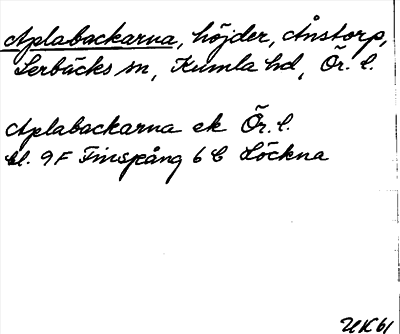 Aplabackarna, höjder, Ånstorp,
Lerbäcks sn, Kumla hd, Ör. l.
Aplabackarna ek Ör. l.
bl. 9F Finspång 6 C Höckna
UK61